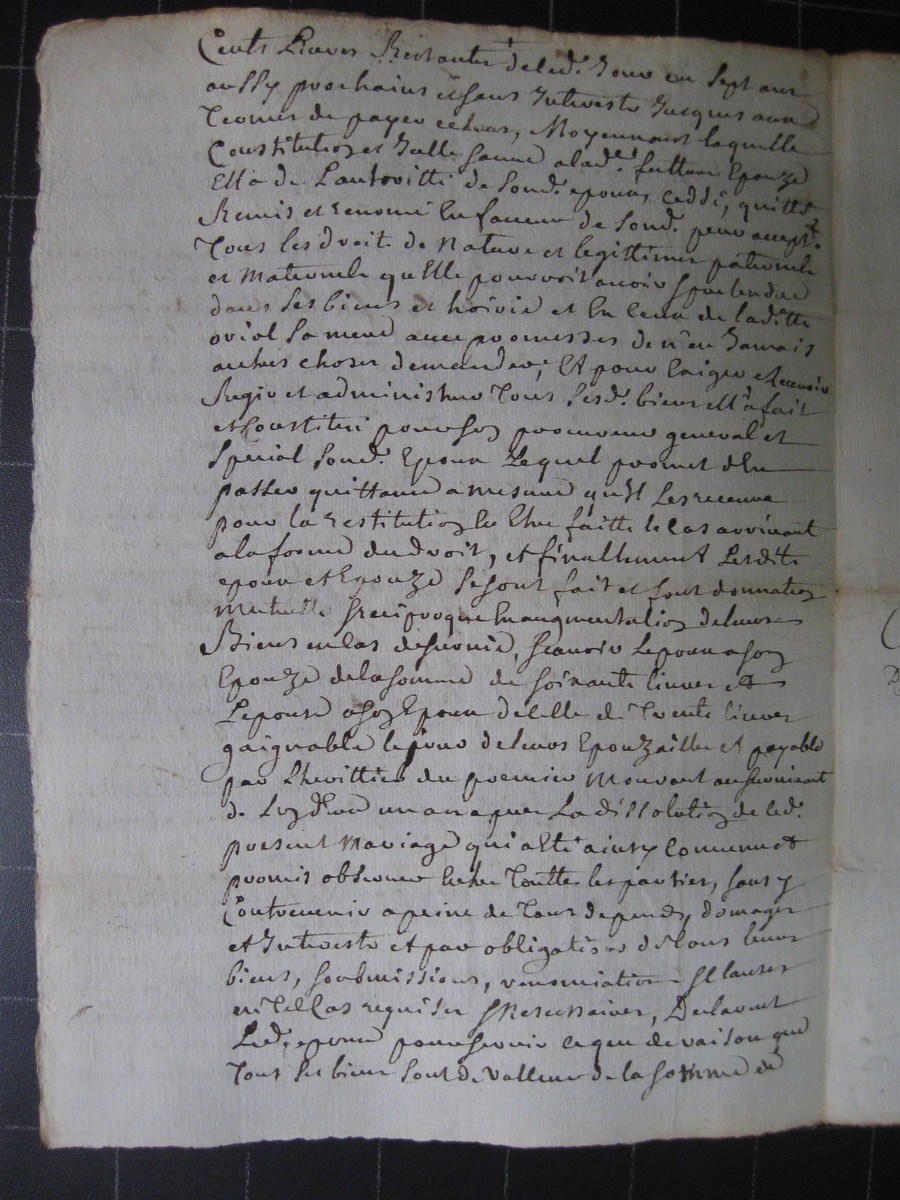 Cents Livres Restantes de led. Jour en sept ans
aussy prochains et sans Interests Jusques aux
Termes de payer echeus, Moyennant laquelle
Constitution et Icelle sauve a lad. future Epouze
Ella de Lauthoritté de Sond. epoux, ceddé, quitté
Remis et renoncé En faveur de Sond. pere accept.
Tous les droits de Nature et legittimes paternels
et Maternels quelle pourroit avoir & pretendre
dans ses biens et hoirie et En ceux de laditte
oriol sa mere avec promesses de n'en Jamais
autres choses demander, Et pour Exiger et recevoir
Regir et administrer Tous sesd. biens Ell'a fait
et Constitué pour son procureur general et
special Sond. Epoux Lequel promet d'En
passer quittance a mesure qu'Il Les recevra
pour la restitution En Etre faitte le cas arrivant
a la forme du droit, et finallement Lesdits
epoux et Epouze se sont fait et font donnation
Mutuelle & reciproque En augmentation de leurs
Biens en cas de survie, scavoir Lepoux a son
Epouze de la somme de soixante livres et
Lepouse a son Epoux de celle de Trente livres
gaignable le jour de leurs Epouzailles et payable
par Lherittier du premier Mourant au survivant
de Luy d'eux un an apres La dissolution de led.
present Mariage qui a Eté ainsy Convenu et
promis observer Entre Touttes les parties, sans y
Contrevenir a peine de Tous depends, domages
et Interests et par obligations de Tous leurs
biens, soubmissions, renonciations & Clauses
en Tel Cas requises & Necessaires, Declarant
Led. epoux pour servir ce que de raison que
Tous ses biens sont de valleur de la somme de